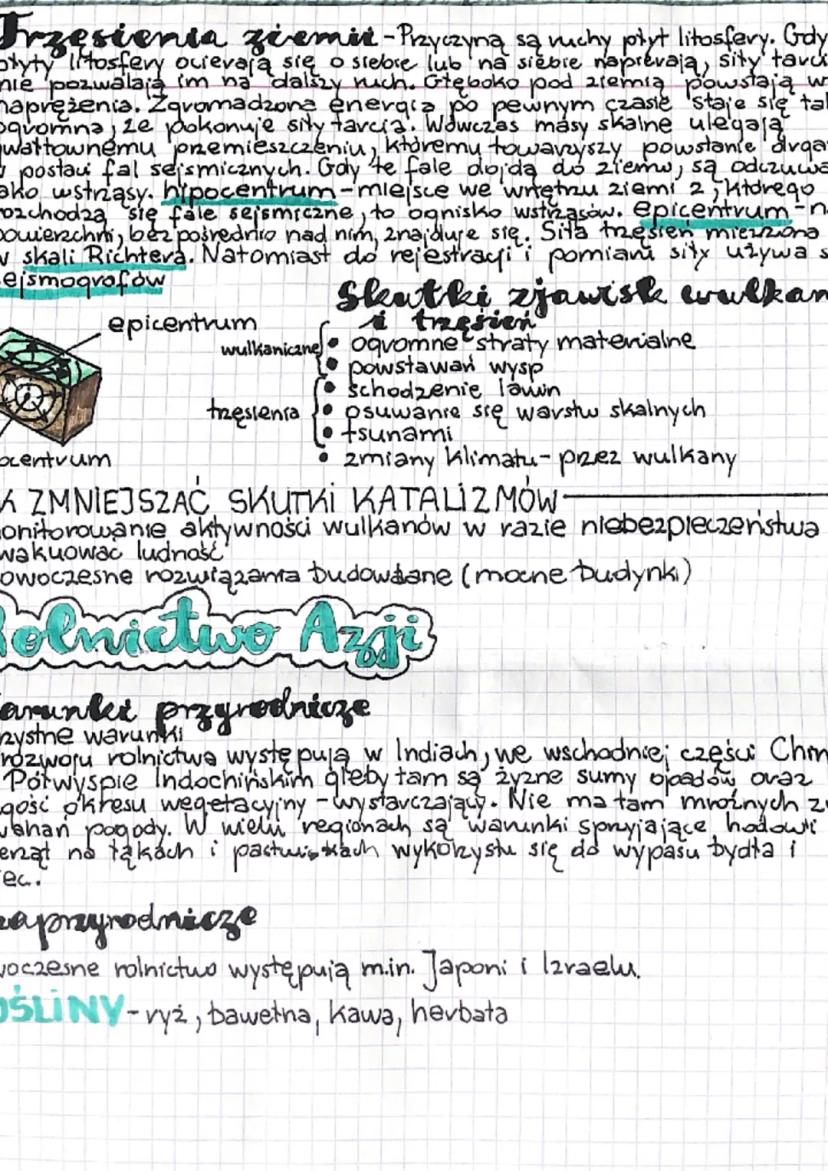 Trzęsienia ziemi - Przyczyną są ruchy płyt litosfery. Gdy
płyty litosfery ocierają się o siebie lub na siebie napierają, siły tarc
nie pozwalają im na dalszy ruch. Głęboko pod ziemią powstają w
naprężenia. Zgromadzona energia po pewnym czasie staje się tak
ogromna, że pokonuje siły tarcia. Wówczas masy skalne ulegają
gwałtownemu przemieszczeniu, któremu towarzyszy powstanie drga
w postaci fal sejsmicznych. Gdy te fale dojdą do ziemi, są odczuwa
ako wstrząsy. hipocentrum - miejsce we wnętrzu ziemi z, którego
rozchodzą się fale sejsmiczne, to ognisko wstrząsów. epicentrum - n
powierzchni, bezpośrednio nad nim, znajduje się. Siła trzęsień mierzona
w skali Richtera. Natomiast do rejestracji i pomiani siły używa s
ejsmografów
Skutki zjawisk wulkan
i trzęsień
epicentrum
wulkaniczne
• ogromne straty materialne
• powstawań wysp
• schodzenie lawin
trzęsienia
• osuwanie się warstw skalnych
• tsunami
ocentrum
• zmiany klimatu - przez wulkany
K ZMNIEJSZAĆ SKUTKI KATALIZMÓW
onitorowanie aktywności wulkanów w razie niebezpieczeństwa
wakuować ludność
owoczesne rozwiązania budowlane (mocne budynki)
Rolnictwo Azji
arunki przyrodnicze
rzystne warunki
rozwoju rolnictwa występują w Indiach, we wschodniej części Chin
Półwyspie Indochińskim gleby tam są żyzne sumy opadów oraz
gość okresu wegetacyjny - wystarczający. Nie ma tam mroźnych z
wahań pogody. W wielu regionach są warunki sprzyjające hodowli
erząt na łąkach i pastwiskach wykorzystu się do wypasu bydła i
ec.
zaprzyrodnicze
woczesne rolnictwo występują m.in. Japoni i Izraelu.
OŚLINY - ryż, bawełna, kawa, herbata